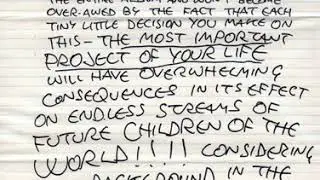 THE ENTIRE ALBUM AND DON'T BECOME
OVER-AWED BY THE FACT THAT EACH
TINY LITTLE DECISION YOU MAKE ON
THIS - THE MOST IMPORTANT
PROJECT OF YOUR LIFE
WILL HAVE OVERWHELMING
CONSEQUENCES IN ITS EFFECT
ON ENDLESS STREAMS OF
FUTURE CHILDREN OF THE
WORLD!!!! CONSIDERING
BACKGROUND IN THE